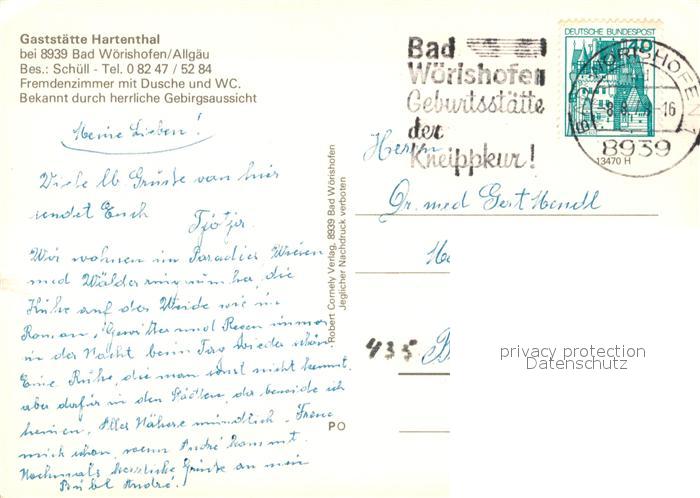 Gaststätte Hartenthal
bei 8939 Bad Wörishofen/Allgäu
Bes.: Schüll - Tel. 0 82 47 / 52 84
Fremdenzimmer mit Dusche und WC.
Bekannt durch herrliche Gebirgsaussicht
Meine Lieben!
Viele lb Grüße von hier
sendet Euch
Wir wohnen im Paradies Wiesen
und Wälder ringsumher, die
Kühe auf der Weide wie im
Roman, Gewitter und Regen immer
in der Nacht beim Tag wieder schön.
Eine Ruhe, die man sonst nicht kennt,
aber dafür in den Städten, da beneide ich
keinen. Alles Nähere mündlich. Freue
mich schon, wenn André kommt.
Nochmals herzliche Grüße an mein
André!
Robert Cornely Verlag, 8939 Bad Wörishofen
Jeglicher Nachdruck verboten
PO
Bad
Wörishofen
Geburtsstätte
der
Kneippkur!
DEUTSCHE BUNDESPOST
40
WÖRISHOFE
-16
8939
13470 H
Herrn
Dr. med Gert Hendl
435
privacy protection
Datenschutz